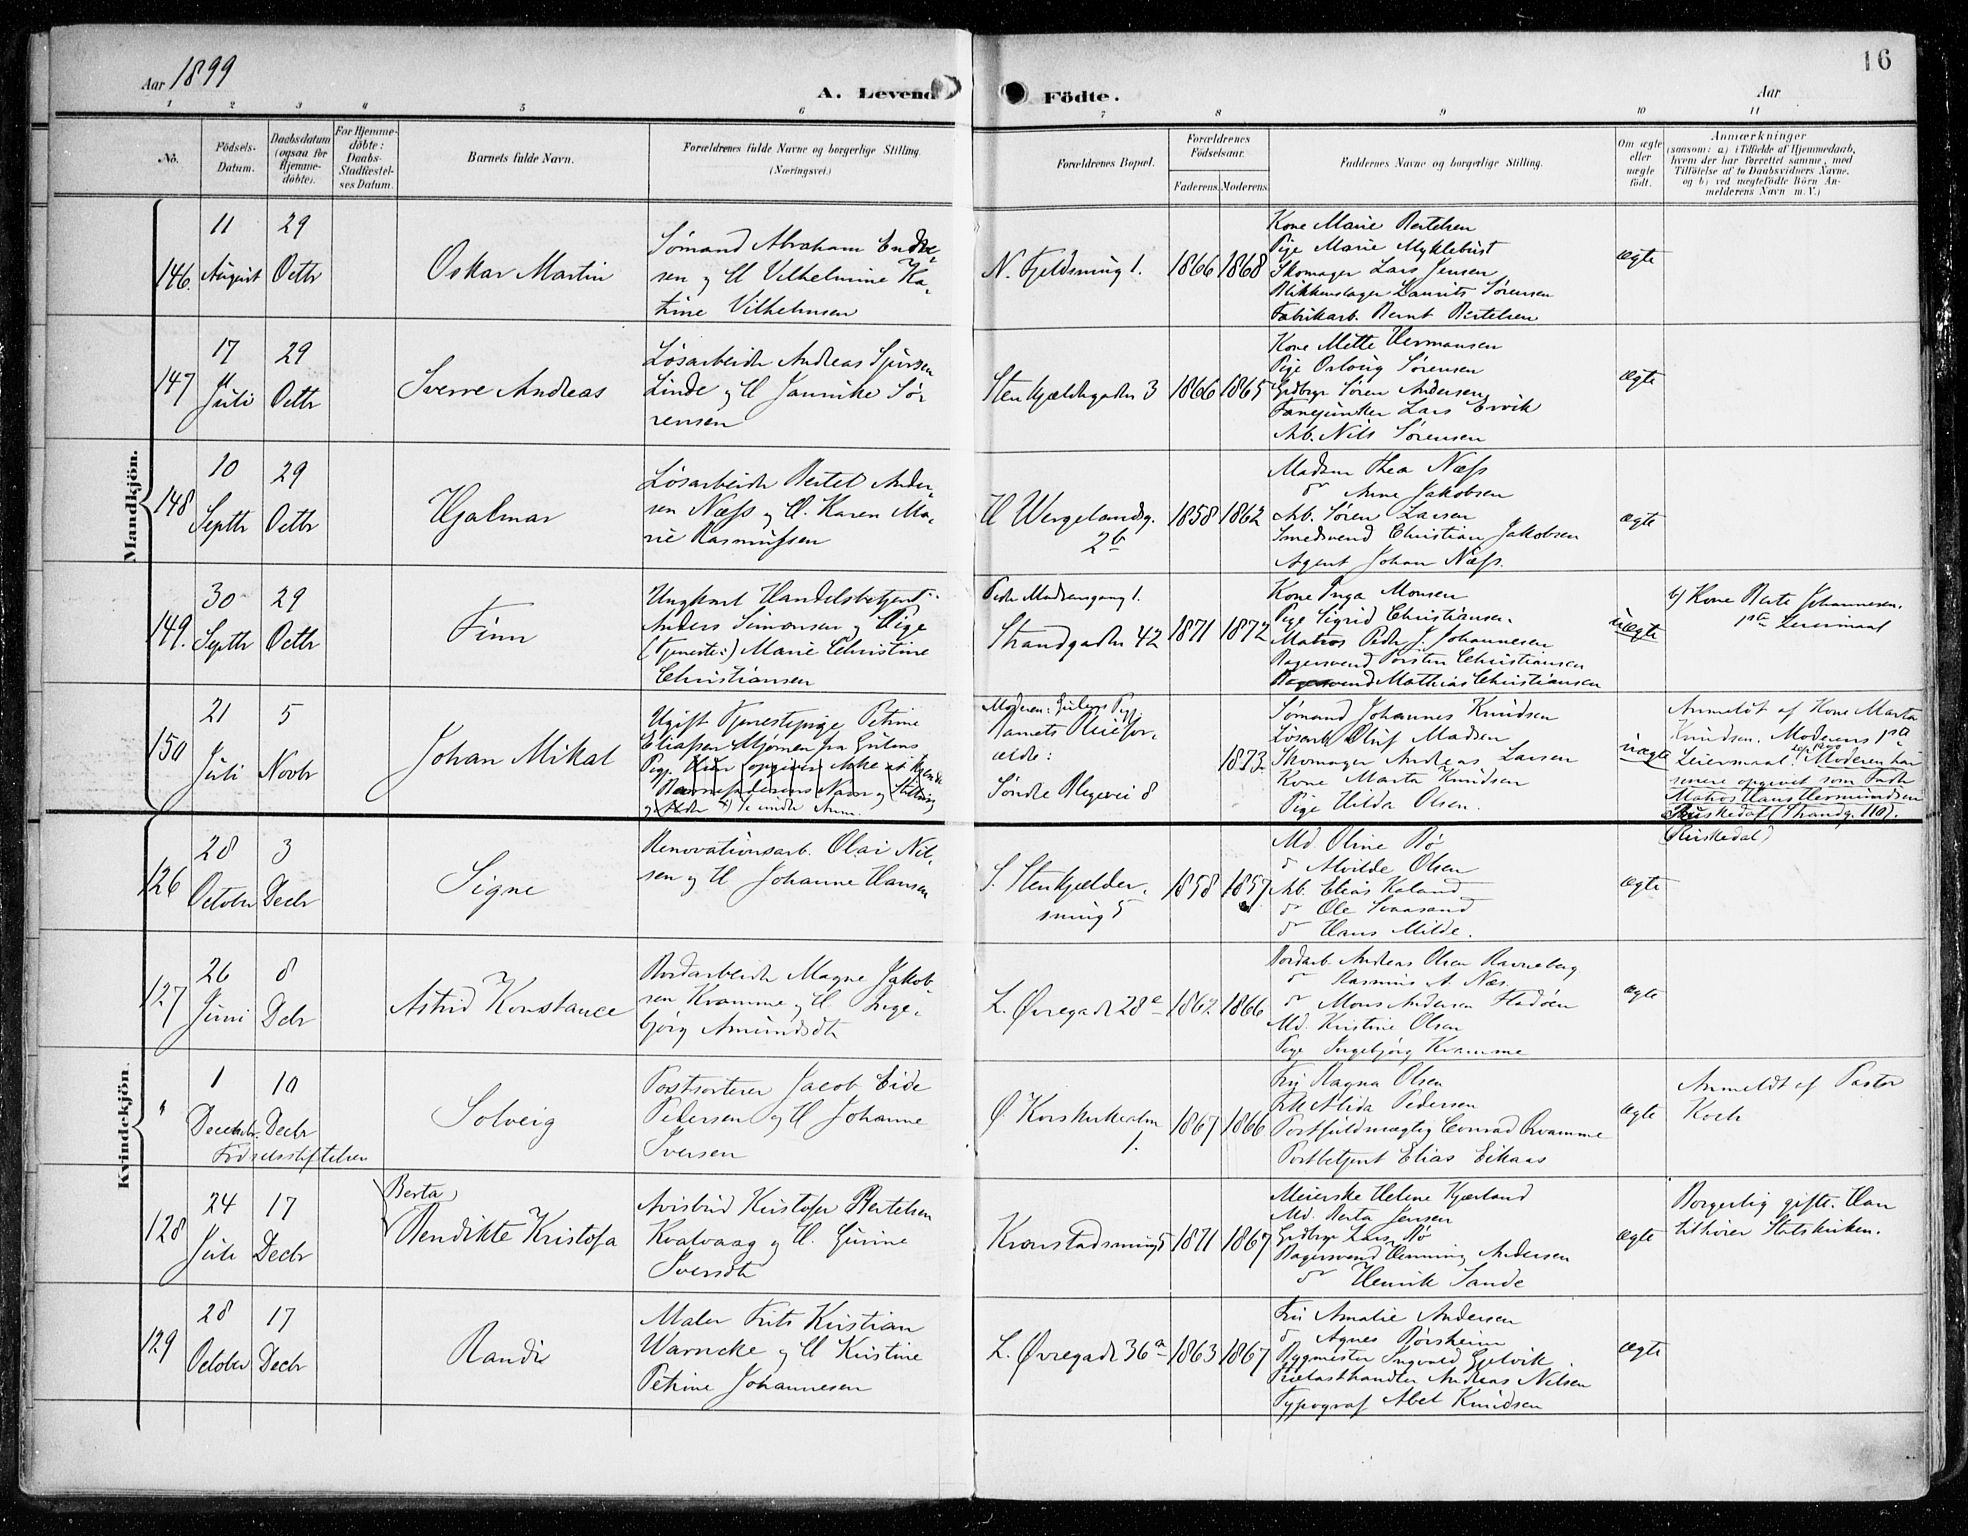 Aar 1899
A. Levend
Födte.
Aar
16
1 2 3 4 5 6 7 8 9 10 11
No.
Födsels-
Datum.
Daabsdatum
(ogsaa for
Hjemme-
döbte).
For Hjemme-
döbte:
Daabs-
Stadfæstel-
ses Datum.
Barnets fulde Navn.
Forældrenes fulde Navne og borgerlige Stilling.
(Næringsvei.)
Forældrenes Bopæl.
Forældrenes
Födselsaar.
Faderens. Moderens.
Faddernes Navne og borgerlige Stilling.
Om ægte
eller
uægte
födt.
Anmærkninger
(saasom: a) i Tilfælde af Hjemmedaab,
hvem der har forrettet samme, med
Tilföielse af to Daabsvidners Navne,
og b) ved uægtefödte Börn An-
melderens Navn m. V.)
Mandkjön.
146.
11
August
29
Octbr
Oskar Martin
Sømand Abraham Endre-
sen og H Vilhelmine Ka-
trine Vilhelmsen
N. Fjeldsmug 1.
1866
1868
Kone Marie Bertelsen
Pige Marie Myklebust
Skomager Lars Jensen
Blikkenslager Laurits Sørensen
Fabrikarb. Bernt Bertelsen
ægte
147
17
Juli
29
Octbr
Sverre Andreas
Løsarbeider Andreas
Linde og H Jannike Sø-
rensen
Stenkjeldergaden 3
1866
1865
Kone Mette Hermansen
Pige Oslaug Sørensen
Grdbrgr Søren Andersen
Fanejunker Lars Ervik
Arb. Nils Sørensen
ægte
148
10
Septbr
29
Octbr
Hjalmar
Løsarbeider Bertel Ander-
sen Næss og H. Karen Ma-
rie Rasmussen
H Wergelandsg.
2b
1858
1862
Madam Thea Næss
do Anne Jakobsen
Arb. Søren Larsen
Smedsvend Christian Jakobsen
Agent Johan Næss.
ægte
149.
30
Septbr
29
Octbr
Finn
Ungkarl Handelsbetjent
Anders Simonsen og Pige
(Tjeneste:) Marie Christine
Christiansen
Peder Madsensgang 1.
Strandgaden 42
1871
1872
Kone Inga Monsen
Pige Sigrid Christiansen
Matros Peder J. Johannesen
Bagersvend Torsten Christiansen
Bagersvend Mathias Christiansen
uægte
b) Kone Berte Johannesen.
1ste Leiermaal
150
21
Juli
5
Novbr
Johan Mikal
Ugift Tjenestepige Petrine
Eliassen Mjømen fra Gulens
Pgj.
Se under Anm.
Moderen: Gulens Pgj.
Barnets Pleiefor-
ældre:
Søndre Blegevei 8
1873
Sømand Johannes Knudsen
Løsarb Oluf Madsen
Skomager Andreas Larsen
Kone Marta Knudsen
Pige Hilda Olsen.
uægte
Anmeldt af Kone Marta
Knudsen. Moderens 1ste
Leiermaal. Moderen har
senere opgivet som Fader
Matros Hans Hermundsen
Ruskedal (Strandg. 110).
(Ruskedal)
Kvindekjön.
126
28
October
3
Decbr
Signe
Renovationsarb. Olai Nil-
sen og H Johanne Hansen
S. Stenkjelder-
smug 5
1858
1857
Md Oline Bø
do Alvilde Olsen
Arb. Elias Kaland
do Ole
do Hans Milde.
ægte
127
26
Juni
8
Debr
Astrid Konstance
Jordarbeider Magne Jakob-
sen Kvamme og H Inge-
bjørg Amundsdtr
L. Øvregade 28a
1862
1866
Jordarb. Andreas Olsen Ravneberg
do Rasmus A. Næs.
do Mons Andersen Fladøen
Md. Kristine Olsen
Pige Ingebjørg Kvamme
ægte
"
1
Decembr.
10
Decbr
Fødselsstiftelsen
Solveig
Postsorterer Jacob Eide
Pedersen og H Johanne
Iversen
Ø Korskirkealm
1.
1867
1866
Fru Ragna Olsen
Frk Alida Pedersen
Postfuldmægtig Conrad Kvamme
Postbetjent Elias Eikaas
ægte
Anmeldt af Pastor
Koch
128
24
Juli
17
Decbr
Berta
Bendikte Kristofa
Avisbud Kristofer Bertelsen
Kvalvaag og H. Gurine
Iversdtr
Kronstadsmug 5
1871
1867
Meierske Helene Kjærland
Md. Berta Jensen
Grdbrgr Lars Bø
Bagersvend Henning Andersen
do Henrik Sande
ægte
Borgerlig gifte. Han
tilhører Statskirken.
129
28
October
17
Decbr
Randi
Maler Frits Kristian
Warncke og H Kristine
Petrine Johannesen
L. Øvregade 36a
1863
1867
Fru Amalie Andersen
do Agnes Børsheim
Bygmester Ingvald Gjelvik
Andreas Nilsen
Typograf Abel Knudsen
ægte